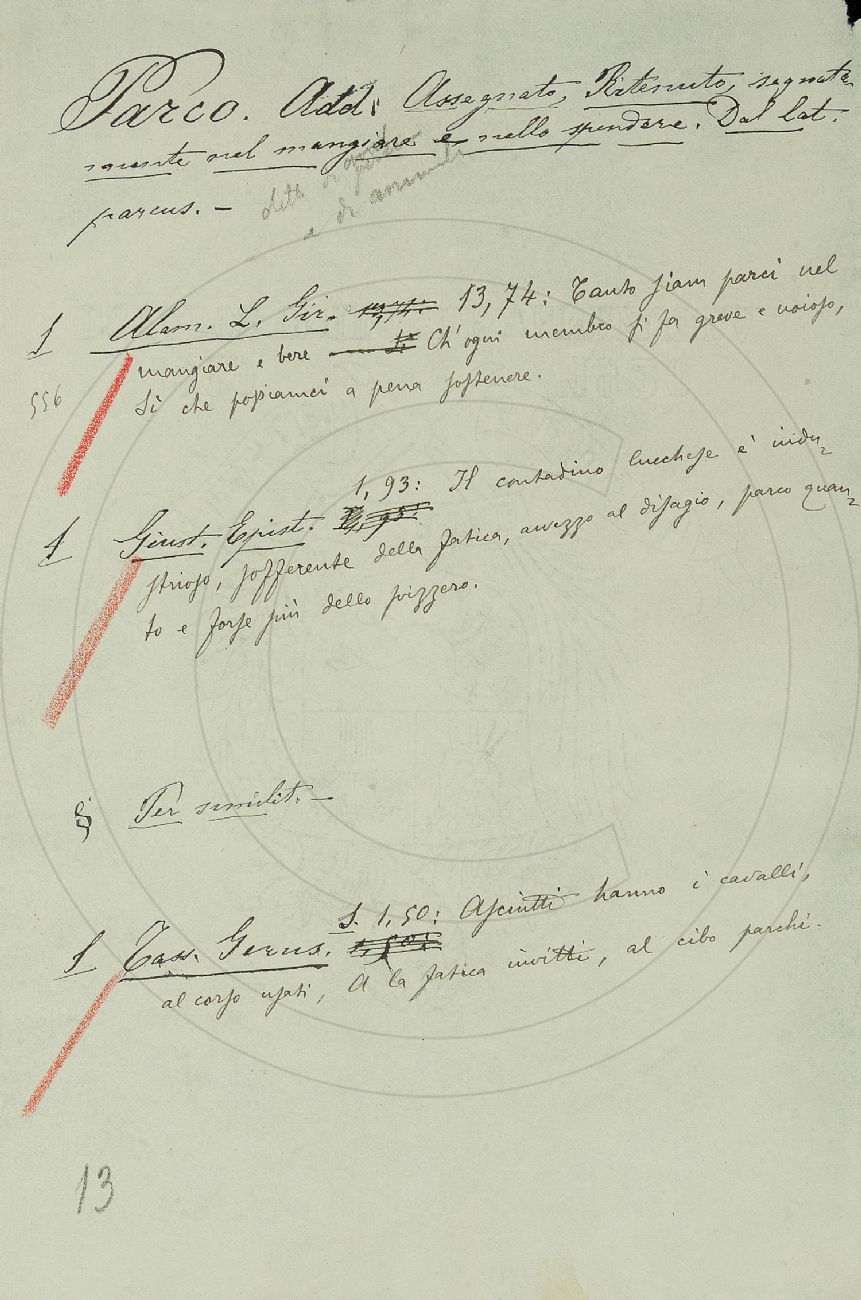 Parco. Add. Assegnato, Ritenuto, segnata-
mente nel mangiare e nello spendere. Dal lat.
parcus. —
e di animali
1 Alam. L. Gir. 13,74: 13, 74: Tanto siam parci nel
mangiare e bere Ch'ogni membro si fa greve e noioso,
556
Sì che possiamci a pena sostenere.
1, 93: Il contadino lucchese è indu=
1 Giust. Epist. 1, 93:
strioso, sofferente della fatica, avvezzo al disagio, parco quan=
to e forse più dello svizzero.
§ Per similit. —
S. 1, 50: Asciutti hanno i cavalli,
1 Tass. Gerus. 1, 50:
al corso usati, A la fatica invitti, al cibo parchi.
13